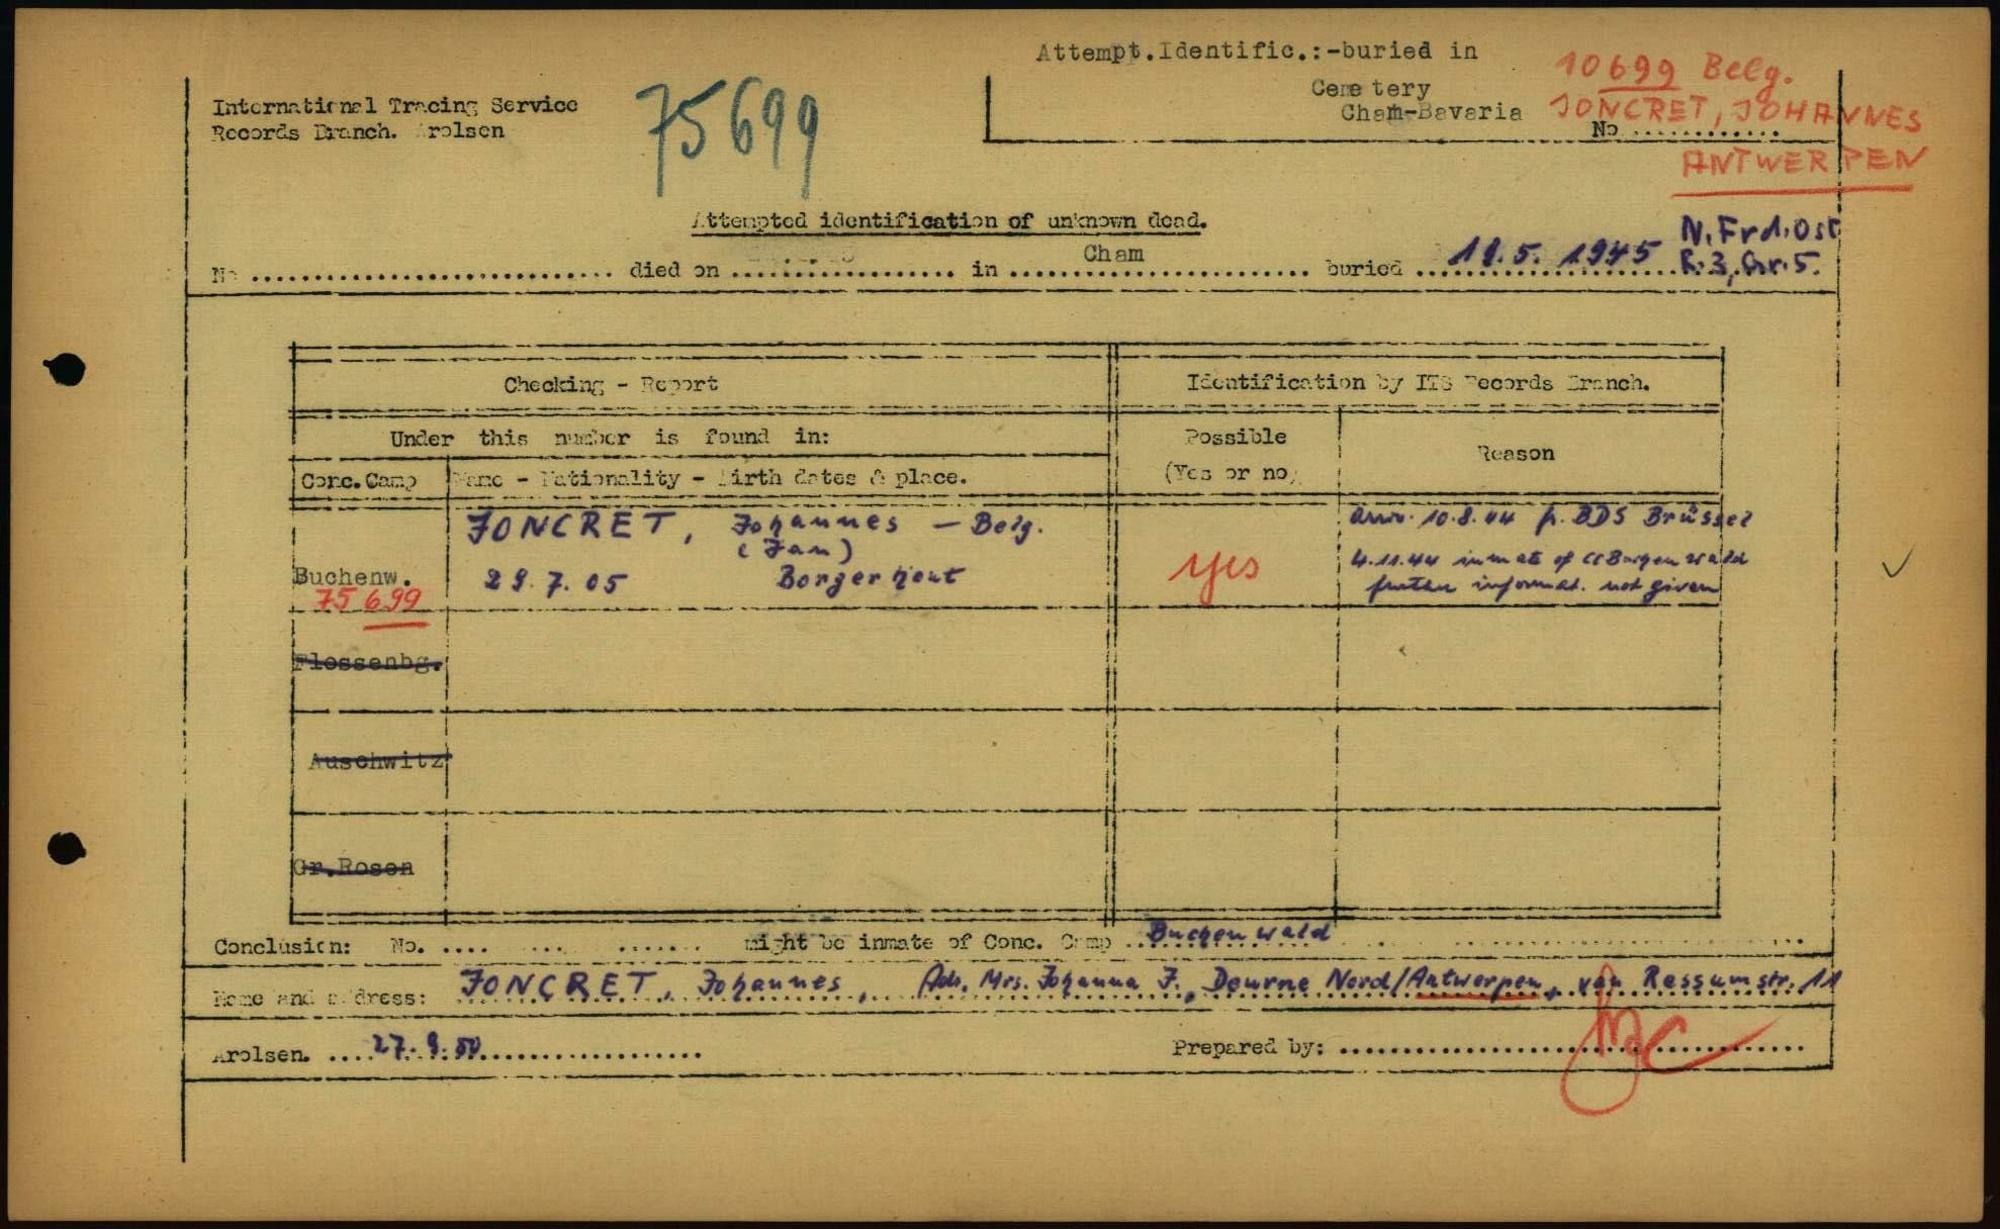 Attempt.Identific.:-buried in
Cemetery
Cham-Bavaria
No ............
10699 Belg.
JONCRET, JOHANNES
ANTWERPEN
International Tracing Service
Records Branch. Arolsen
75699
Attempted identification of unknown dead.
No ............ died on ............ in Cham buried 19.5. 1945 N.Frd.Ost
R.3, Gr.5.
Checking - Report
Identification by ITS Records Branch.
Under this number is found in:
Possible
(Yes or no)
Reason
Conc.Camp
Name - Nationality - Birth dates & place.
Buchenw.
75 699
JONCRET, Johannes - Belg.
(Jan)
29.7.05 Borgerhout
yes
arriv. 10.8.44 fr. BDS Brüssel
4.11.44 inmate of CC Buchenwald
further informat. not given
Flossenbg.
Auschwitz
Gr.Rosen
Conclusion: No. .... .... ....... might be inmate of Conc. Camp Buchenwald
Name and address: JONCRET, Johannes, Adr. Mrs. Johanna J., Deurne Nord/Antwerpen, van Ressumstr. 11
Arolsen. 27.9.50
Prepared by: ............